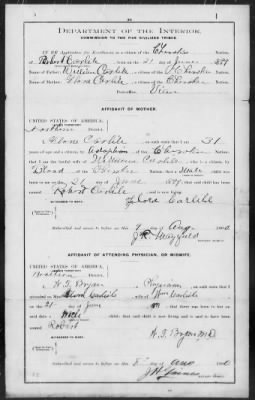 DEPARTMENT OF THE INTERIOR,
COMMISSION TO THE FIVE CIVILIZED TRIBES.
IN RE Application for Enrollment, as a citizen of the Cherokee Nation,
of Robert Carlile born on the 21 day of June
Name of Father: William Carlile a citizen of the Cherokee Nation.
Name of Mother: Flora Carlile a citizen of the Cherokee Nation.
Postoffice Vian
AFFIDAVIT OF MOTHER.
UNITED STATES OF AMERICA,
INDIAN TERRITORY,
Northern District.
I, Flora Carlile on oath state that I am 31
years of age and a citizen by Adoption of the Cherokee Nation;
that I am the lawful wife of William Carlile who is a citizen, by
Blood of the Cherokee Nation; that a Male child was
born to me on 21 day of June that said child has been
named Robert Carlile and is now living.
Flora Carlile
Subscribed and sworn to before me this 9 Aug
NOTARY PUBLIC.
AFFIDAVIT OF ATTENDING PHYSICIAN, OR MIDWIFE.
UNITED STATES OF AMERICA,
INDIAN TERRITORY,
Northern District.
I, Bryan a Physician on oath state that I
attended on Mrs. Carlile wife of Wm Carlile
on the 21 day of June that there was born to her on
said date a Male child; that said child is now living and is said to have been
named Robert
Bryan M.D.
Subscribed and sworn to before me this 8 Aug
NOTARY PUBLIC.